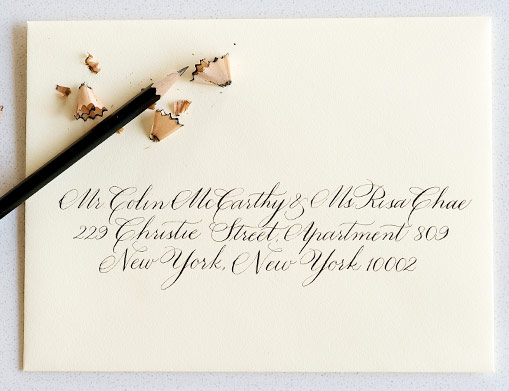 Mr Colin McCarthy & Ms Risa Chae
229 Christie Street, Apartment 809
New York, New York 10002